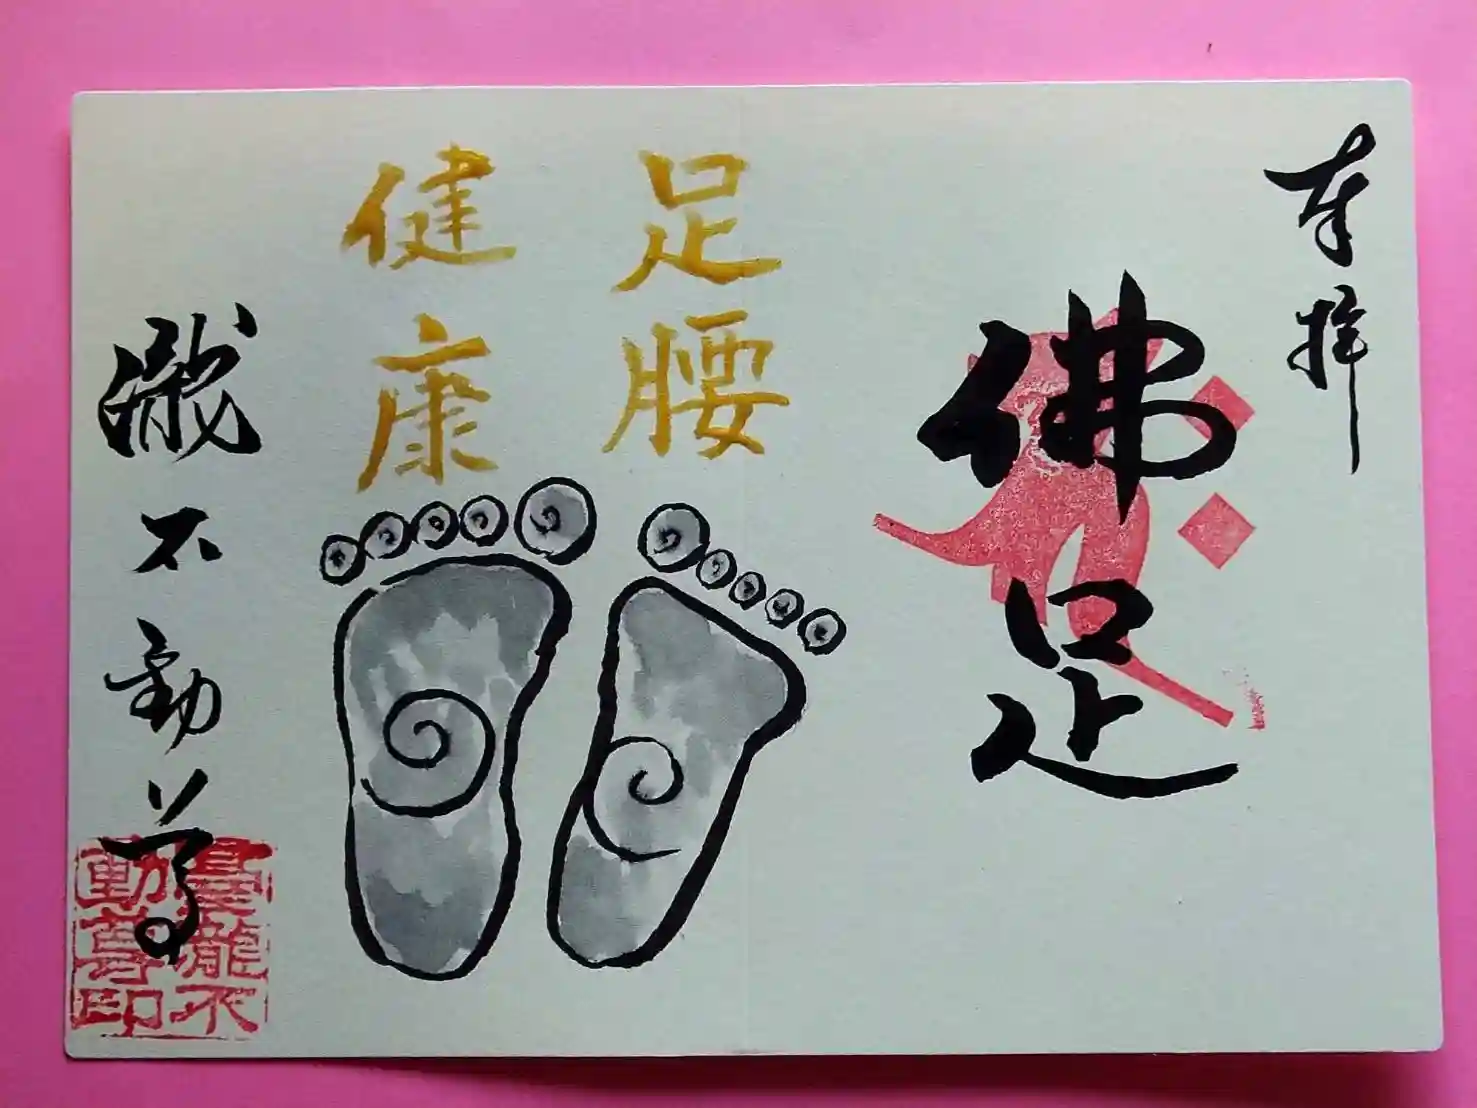 奉拝
佛足
足腰
健康
瀧不動尊
瀧不
動尊印